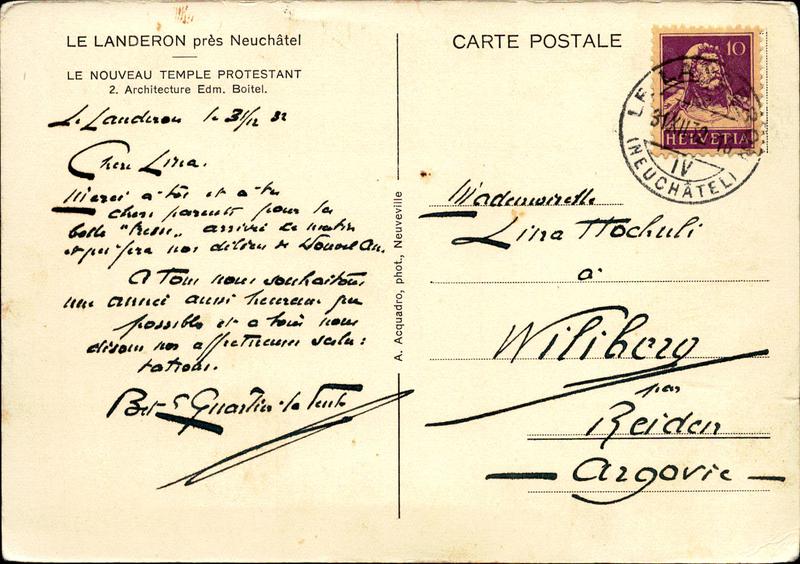 LE LANDERON près Neuchâtel
LE NOUVEAU TEMPLE PROTESTANT
2. Architecture Edm. Boitel.
Le Landeron le 31/12 32
Chère Lina.
Merci à toi et a tes
chers parents pour la
belle " " arrivée ce matin
et qui fera nos délices de Nouvel An.
A Tous nous souhaitons
une année aussi heureuse que
possible et a tous nous
disons nos affectueuses salu:
tations.
Quartier-la-Tente
A. Acquadro, phot., Neuveville
CARTE POSTALE
10
HELVETIA
31.XII.32
IV
(NEUCHÂTEL)
Mademoiselle
Lina Hochuli
à
Wiliberg
par
Reiden
Argovie